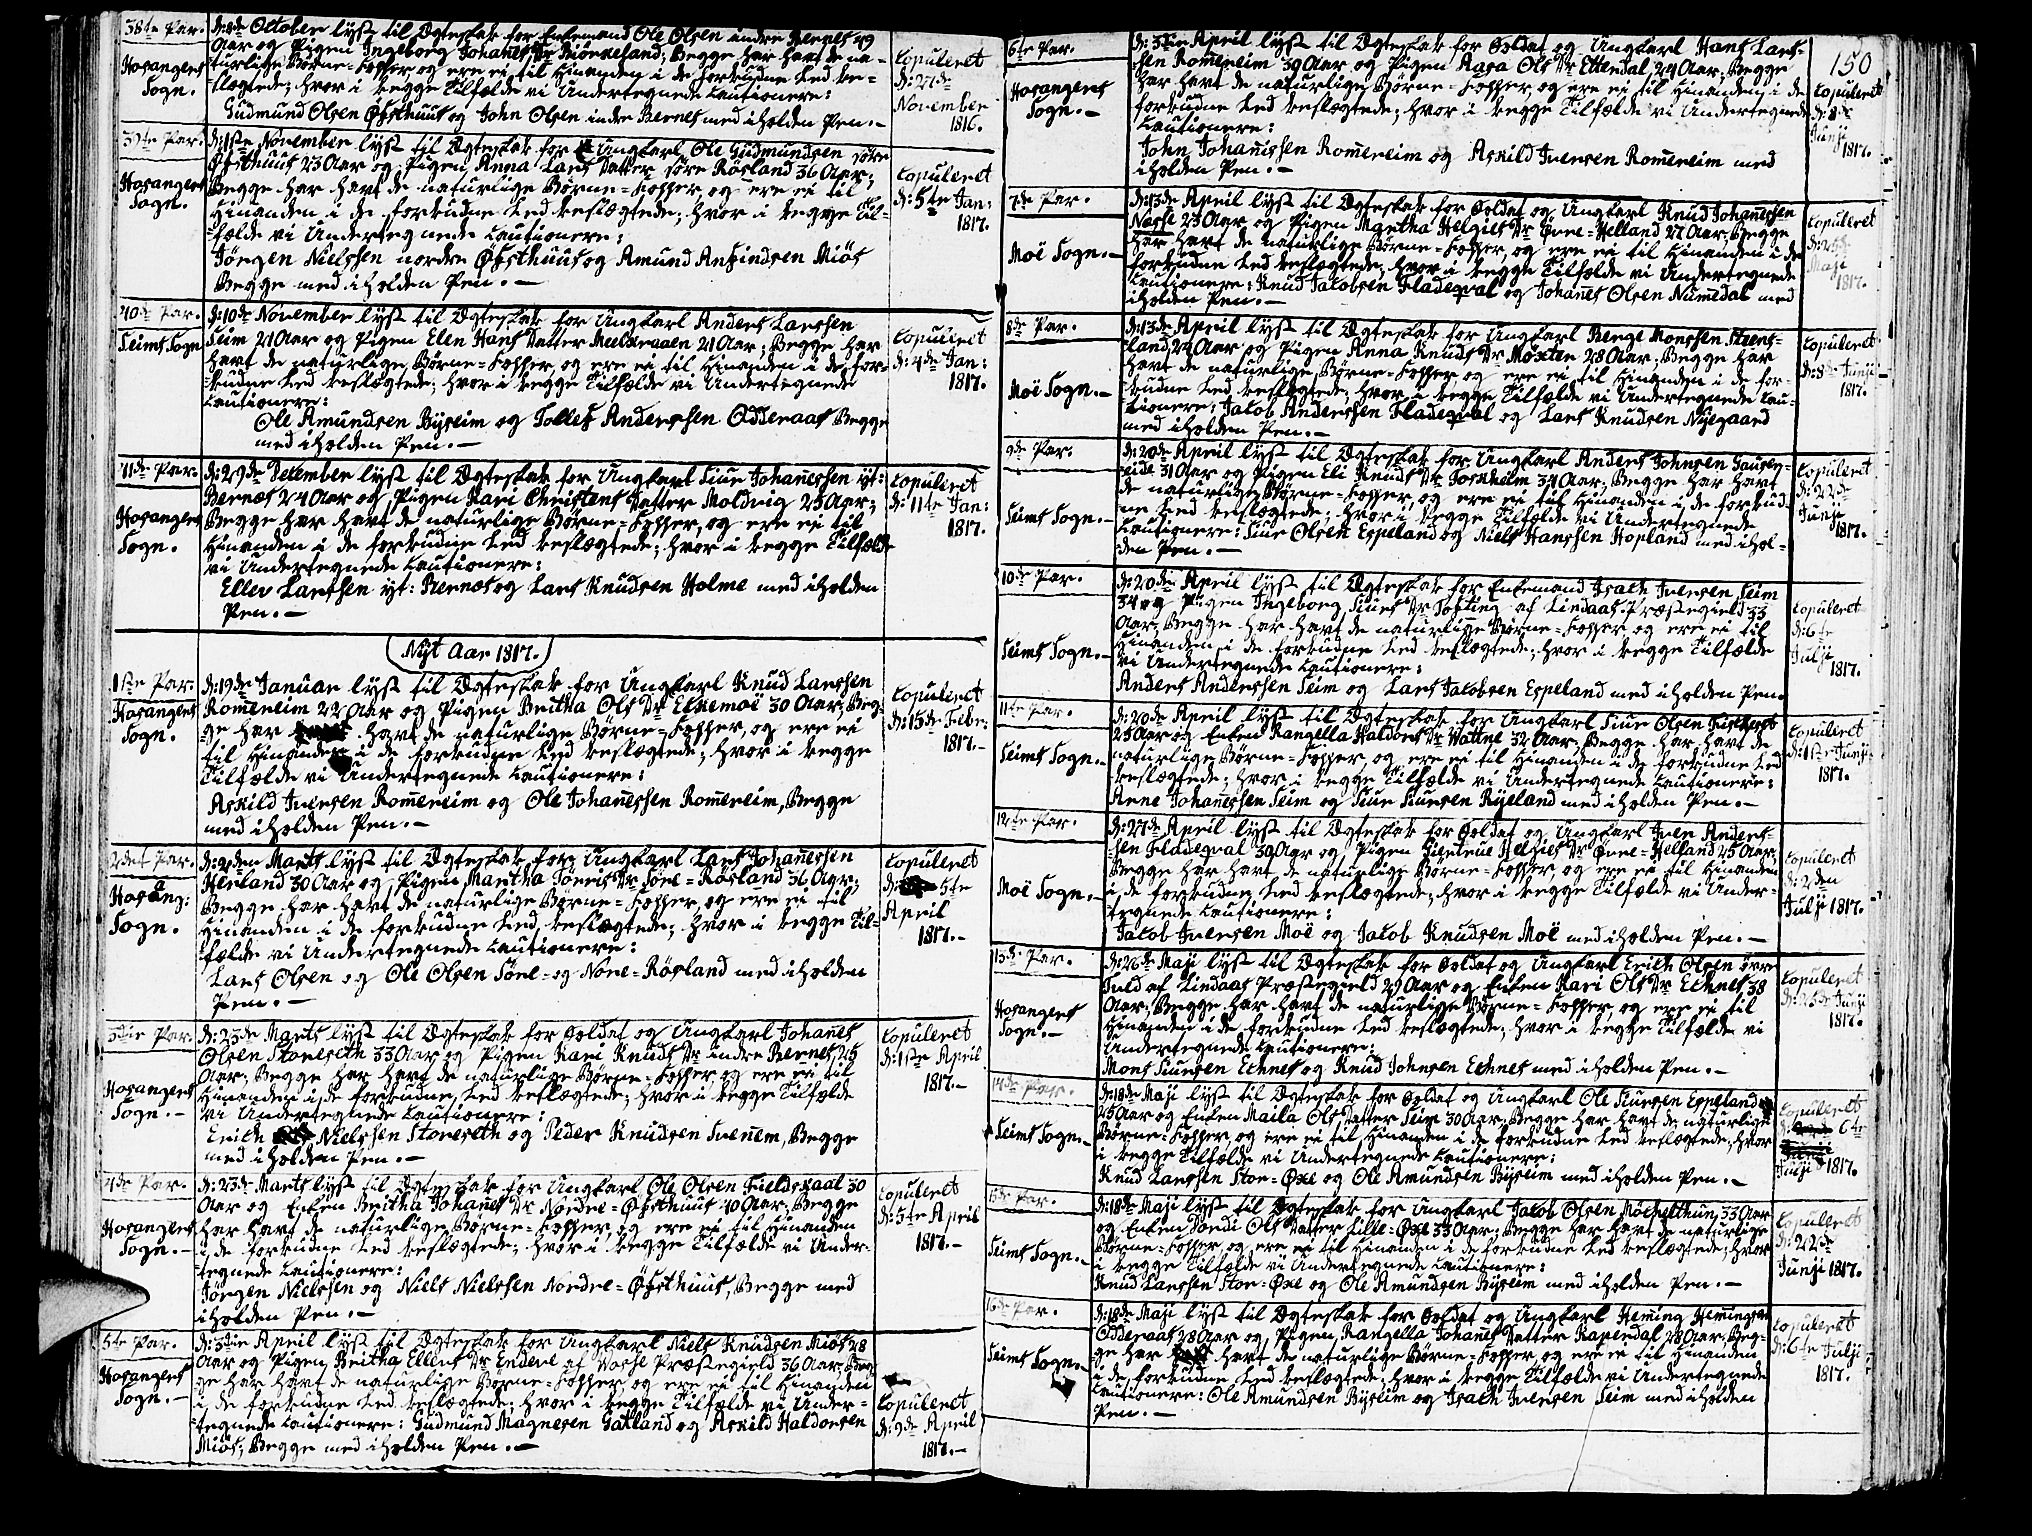 38te Par.
Hosangers
Sogn.
d: 8de October lyst til Ægteskab for Enkemand Ole Olsen indre Bernes 49
Aar og Pigen Ingeborg Johannes Dr Biørneland; Begge har havt de na-
turlige Børne-Kopper og ere ei til Hinanden i de forbudne Led be-
slægtede; hvor i begge Tilfælde vi Undertegnede Cautionere:
Gudmund Olsen Øfsthuus og John Olsen indre Bernes med iholden Pen. -
Copuleret
d: 27de
November
1816.
39te Par.
Hosangers
Sogn.
d: 1ste November lyst til Ægteskab for Ungkarl Ole Gudmundsen søre
Øfsthuus 23 Aar og Pigen Anna Lars Datter søre Røsland 36 Aar;
Begge har havt de naturlige Børne-Kopper og ere ei til
Hinanden i de forbudne Led beslægtede; hvor i begge Til-
fælde vi Undertegnede Cautionere:
Jørgen Nielssen nordre Øfsthuus og Amund Anfindsen Miøs
Begge med iholden Pen. -
Copuleret
d: 5te Jan:
1817.
40de Par.
Seims Sogn
d: 10de November lyst til Ægteskab for Ungkarl Anders Larssen
Seim 21 Aar og Pigen Elen Hans Datter Meelkeraaen 21 Aar; Begge har
havt de naturlige Børne-Kopper og ere ei til Hinanden i de for-
-budne Led beslægtede; hvor i begge Tilfælde vi Undertegnede
Cautionere:
Ole Amundsen Byseim og Tollef Anderssen Odderaas Begge
med iholden Pen. -
Copuleret
d: 4de Jan:
1817.
41de Par.
Hosangers
Sogn.
d: 29de December lyst til Ægteskab for Ungkarl Siur Johannessen yt:
Bernæs 24 Aar og Pigen Kari Christens Datter Moldvig 25 Aar;
Begge har havt de naturlige Børne-Kopper, og ere ei til
Hinanden i de forbudne Led beslægtede; hvor i begge Tilfælde
vi Undertegnede Cautionere:
Ellev Larssen yt: Bernæs og Lars Knudsen Holme med iholden
Pen. -
Copuleret
d: 11te Jan:
1817.
Nyt Aar 1817.
1ste Par.
Hosangers
Sogn.
d: 19de Januar lyst til Ægteskab for Ungkarl Knud Larssen
Romereim 22 Aar og Pigen Britha Ols Dr Elkemoë 30 Aar, Beg-
ge har havt de naturlige Børne-Kopper, og ere ei
til Hinanden i de forbudne Led beslægtede; hvor i begge
Tilfælde vi Undertegnede Cautionere:
Askild Iversen Romereim og Ole Johannessen Romereim, Begge
med iholden Pen. -
Copuleret
d: 15de Febr:
1817. -
2det Par.
Hosang:
Sogn.
d: 2den Marts lyst til Ægteskab for Ungkarl Lars Johannessen
Herland 30 Aar og Pigen Martha Tørris Dr Søre-Røsland 36 Aar;
Begge har havt de naturlige Børne-Kopper, og ere ei til
Hinanden i de forbudne Led beslægtede; hvor i begge Til-
fælde vi Undertegnede Cautionere:
Lars Olsen og Ole Olsen Søre- og Nore-Røsland med iholden
Pen. -
Copuleret
d: 5te
April
1817. -
3die Par.
Hosangers
Sogn. -
d: 23de Marts lyst til Ægteskab for Soldat og Ungkarl Johannes
Olsen Storeseth 33 Aar og Pigen Kari Knuds Dr indre Bernes 25
Aar; Begge har havt de naturlige Børne-Kopper og ere ei til
Hinanden i de forbudne Led beslægtede; hvor i begge Tilfælde
vi Undertegnede Cautionere:
Erich Nielssen Storeseth og Peder Knudsen Svenem, Begge
med iholden Pen. -
Copuleret
d: 1ste April
1817. -
4de Par.
Hosangers
Sogn. -
d: 23de Marts lyst til Ægteskab for Ungkarl Ole Olsen Fieldskaal 30
Aar og Enken Britha Johannes Dr Nordre-Øfsthuus 40 Aar; Begge
har havt de naturlige Børne-Kopper, og ere ei til Hinanden
i de forbudne Led beslægtede; hvor i begge Tilfælde vi Under-
-tegnede Cautionere:
Jørgen Nielssen og Niels Nielssen Nordre-Øfsthuus, Begge med
iholden Pen. -
Copuleret
d: 5te April
1817. -
5te Par.
Hosangers
Sogn. -
d: 3die April lyst til Ægteskab for Ungkarl Niels Knudsen Miøs 28
Aar og Pigen Britha Ellens Dr Endere af Vosse Præstegield 36 Aar, Beg-
ge har havt de naturlige Børne-Kopper, og ere ei til Hinanden
i de forbudne Led beslægtede; hvor i begge Tilfælde vi Under-
-tegnede Cautionere: Gudmund Magnesen Gatland og Askild Haldorsen
Miøs; Begge med iholden Pen. -
Copuleret
d: 9de April
1817. -
150
6te Par.
Hosangers
Sogn. -
d: 3die April lyst til Ægteskab for Soldat og Ungkarl Hans Lars-
sen Romereim 39 Aar og Pigen Aasa Ols Dr Ettendal 24 Aar; Begge
har havt de naturlige Børne-Kopper, og ere ei til Hinanden i de
forbudne Led beslægtede; hvor i begge Tilfælde vi Undertegnede
Cautionere:
John Johannissen Romereim og Askild Iversen Romereim med
iholden Pen. -
Copuleret
d: 8de
Junji
1817.
7de Par.
Moë Sogn. -
d: 13de April lyst til Ægteskab for Soldat og Ungkarl Knud Johannessen
Nasse 23 Aar og Pigen Martha Helgies Dr Øvre-Helland 27 Aar; Begge
har havt de naturlige Børne-Kopper, og ere ei til Hinanden i de
forbudne Led beslægtede; hvor i begge Tilfælde vi Undertegnede
Cautionere: Knud Jacobsen Fladeqval og Johannes Olsen Numedal med
iholden Pen. -
Copuleret
d: 25de
Maji
1817.
8de Par.
Moë Sogn. -
d: 13de April lyst til Ægteskab for Ungkarl Berge Monssen Steens-
land 24 Aar og Pigen Anna Knuds Dr Møxter 28 Aar; Begge har
havt de naturlige Børne-Kopper og ere ei til Hinanden i de for-
budne Led beslægtede; hvor i begge Tilfælde vi Undertegnede Cau-
tionere: Jacob Anderssen Fladeqval og Lars Knudsen Nyegaard
med iholden Pen. -
Copuleret
d: 8de Junji
1817.
9de Par.
Seims Sogn. -
d: 20de April lyst til Ægteskab for Ungkarl Anders Johnsen Gauseg-
eide 31 Aar og Pigen Eli Knuds Dr Torskheim 34 Aar; Begge har havt
de naturlige Børne-Kopper og ere ei til Hinanden i de forbud-
ne Led beslægtede; hvor i begge Tilfælde vi Undertegnede
Cautionere: Siur Olsen Espeland og Niels Hanssen Hopland med ihol-
den Pen. -
Copuleret
d: 22de
Junji
1817.
10de Par.
Seims Sogn. -
d: 20de April lyst til Ægteskab for Enkemand Isach Iversen Seim
34 og Pigen Ingeborg Siurs Dr Tofting af Lindaas Præstegield 33
Aar; Begge har havt de naturlige Børne-Kopper og ere ei til
Hinanden i de forbudne Led beslægtede; hvor i begge Tilfælde
vi Undertegnede Cautionere:
Anders Anderssen Seim og Lars Jacobsen Espeland med iholden Pen.
Copuleret
d: 6te
Julji
1817.
11te Par.
Seims Sogn. -
d: 20de April lyst til Ægteskab for Ungkarl Siur Olsen
25 Aar og Enken Rangella Haldors Dr Wattne 32 Aar; Begge har havt de
naturlige Børne-Kopper, og ere ei til Hinanden i de forbudne Led
beslægtede; hvor i begge Tilfælde vi Undertegnede Cautionere:
Arne Johannessen Seim og Siur Siursen Ryeland med iholden Pen. -
Copuleret
d: 1ste Junji
1817.
12te Par.
Moë Sogn. -
d: 27de April lyst til Ægteskab for Soldat og Ungkarl Iver Anders-
sen Fladeqval 30 Aar og Pigen Giertrue Helgies Dr Øvre-Helland 25 Aar;
Begge har havt de naturlige Børne-Kopper, og ere ei til Hinanden
i de forbudne Led beslægtede; hvor i begge Tilfælde vi Under-
tegnede Cautionere:
Jacob Iversen Moë og Jacob Knudsen Moë med iholden Pen. -
Copuleret
d: 2den
Julji 1817.
13de Par.
Hosangers
Sogn. -
d: 26de Maji lyst til Ægteskab for Soldat og Ungkarl Erich Olsen øvre
Juld af Lindaas Præstegield 29 Aar og Enken Kari Ols Dr Echnes 38
Aar; Begge har havt de naturlige Børne-Kopper, og ere ei til
Hinanden i de forbudne Led beslægtede; hvor i begge Tilfælde vi
Undertegnede Cautionere:
Mons Siursen Echnes og Knud Johnsen Echnes med iholden Pen. -
Copuleret
d: 23de Junji
1817.
14de Par.
Seims Sogn. -
d: 18de Maji lyst til Ægteskab for Soldat og Ungkarl Ole Siursen Espeland
25 Aar og Enken Maila Ols Datter Seim 30 Aar; Begge har havt de naturlige
Børne-Kopper, og ere ei til Hinanden i de forbudne Led beslægtede; hvor
i begge Tilfælde vi Undertegnede Cautionere:
Knud Larssen Stor-Øxe og Ole Amundsen Byseim med iholden Pen. -
Copuleret
d: 6te
Julji 1817.
15de Par.
Seims Sogn. -
d: 18de Maji lyst til Ægteskab for Ungkarl Jacob Olsen Møchelthun 33 Aar
og Enken Dordi Ols Datter Lille-Øxe 33 Aar; Begge har havt de naturlige
Børne-Kopper, og ere ei til Hinanden i de forbudne Led beslægtede; hvor
i begge Tilfælde vi Undertegnede Cautionere:
Knud Larssen Stor-Øxe og Ole Amundsen Byseim med iholden Pen. -
Copuleret
d: 22de
Junji 1817.
16de Par.
Seims Sogn. -
d: 18de Maji lyst til Ægteskab for Soldat og Ungkarl Heming Hemingsen
Odderaas 28 Aar og Pigen Rangella Johannes Datter Kapendal 28 Aar; Beg-
ge har havt de naturlige Børne-Kopper og ere ei til Hinanden
i de forbudne Led beslægtede; hvor i begge Tilfælde vi Undertegnede
Cautionere: Ole Amundsen Byseim og Isach Iversen Seim med iholden
Pen. -
Copuleret
d: 6te Julji
1817.